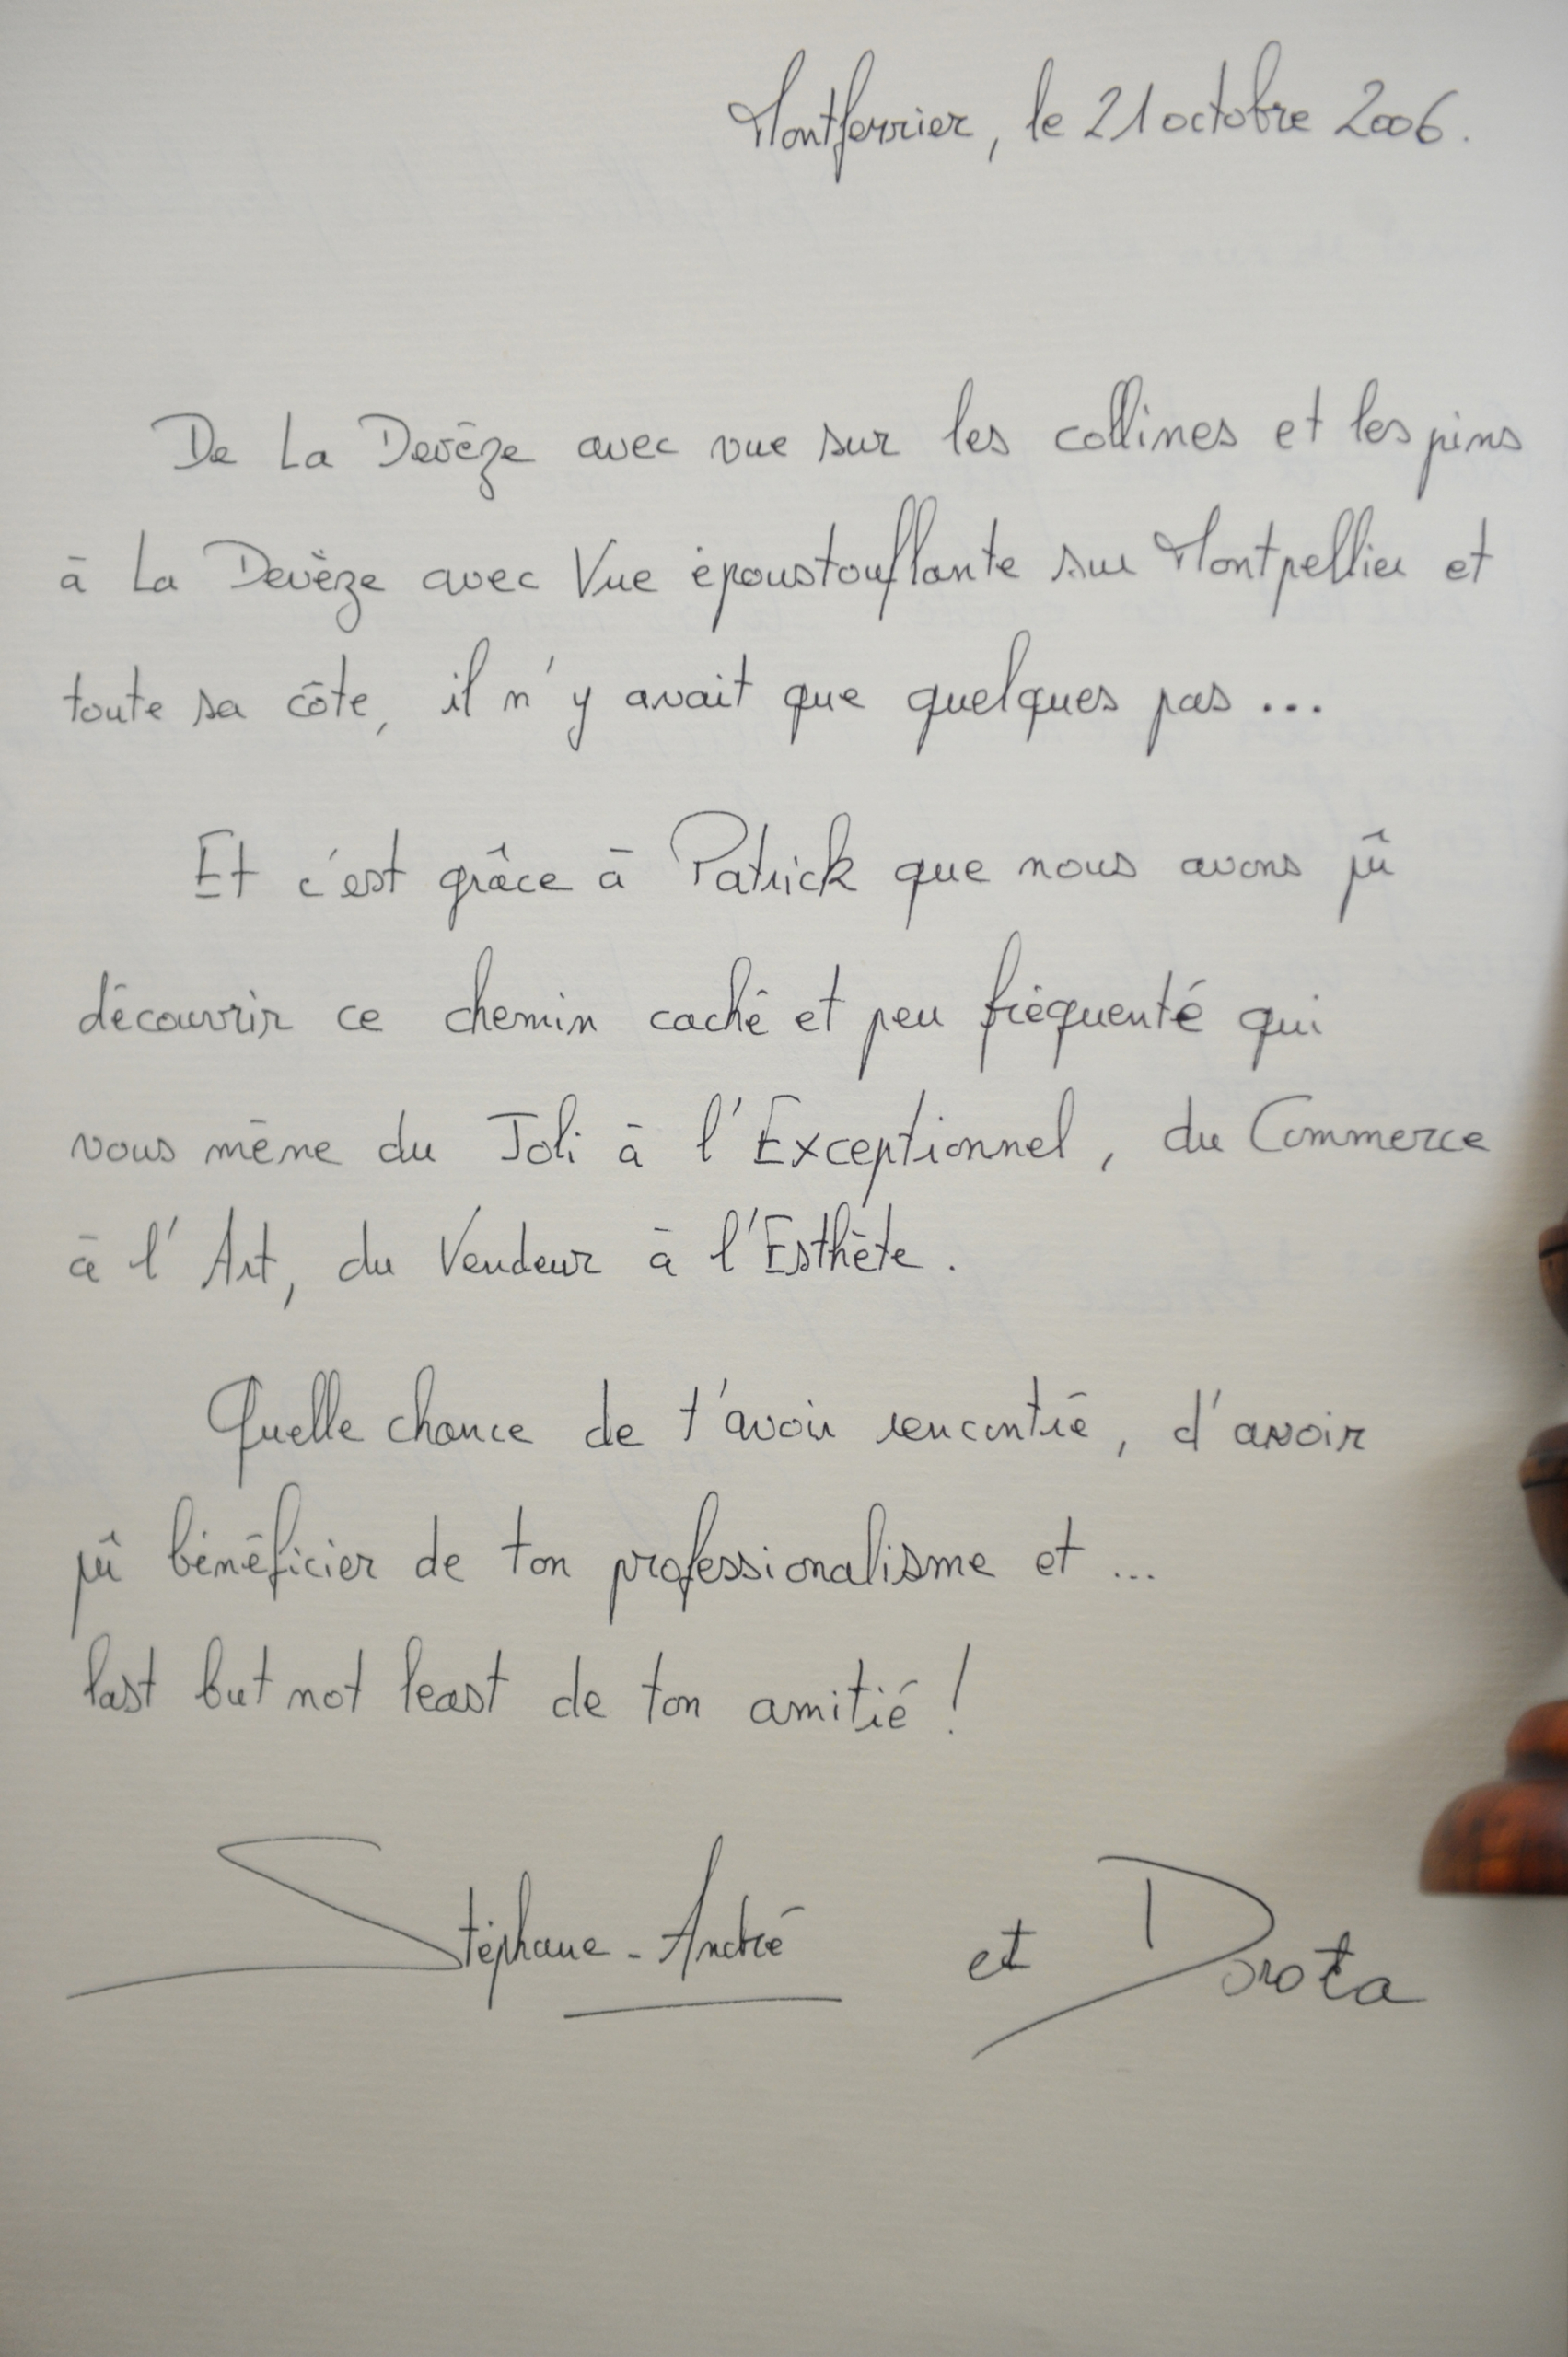 Montferrier, le 21 octobre 2006.
De La Devèze avec vue sur les collines et les pins
à La Devèze avec Vue époustouflante sur Montpellier et
toute sa côte, il n'y avait que quelques pas ...
Et c'est grâce à Patrick que nous avons pû
découvrir ce chemin caché et peu fréquenté qui
vous mène du Joli à l'Exceptionnel, du Commerce
à l'Art, du Vendeur à l'Esthète.
Quelle chance de t'avoir rencontré, d'avoir
pû bénéficier de ton professionalisme et ...
last but not least de ton amitié !
Stéphane-André et Dorota